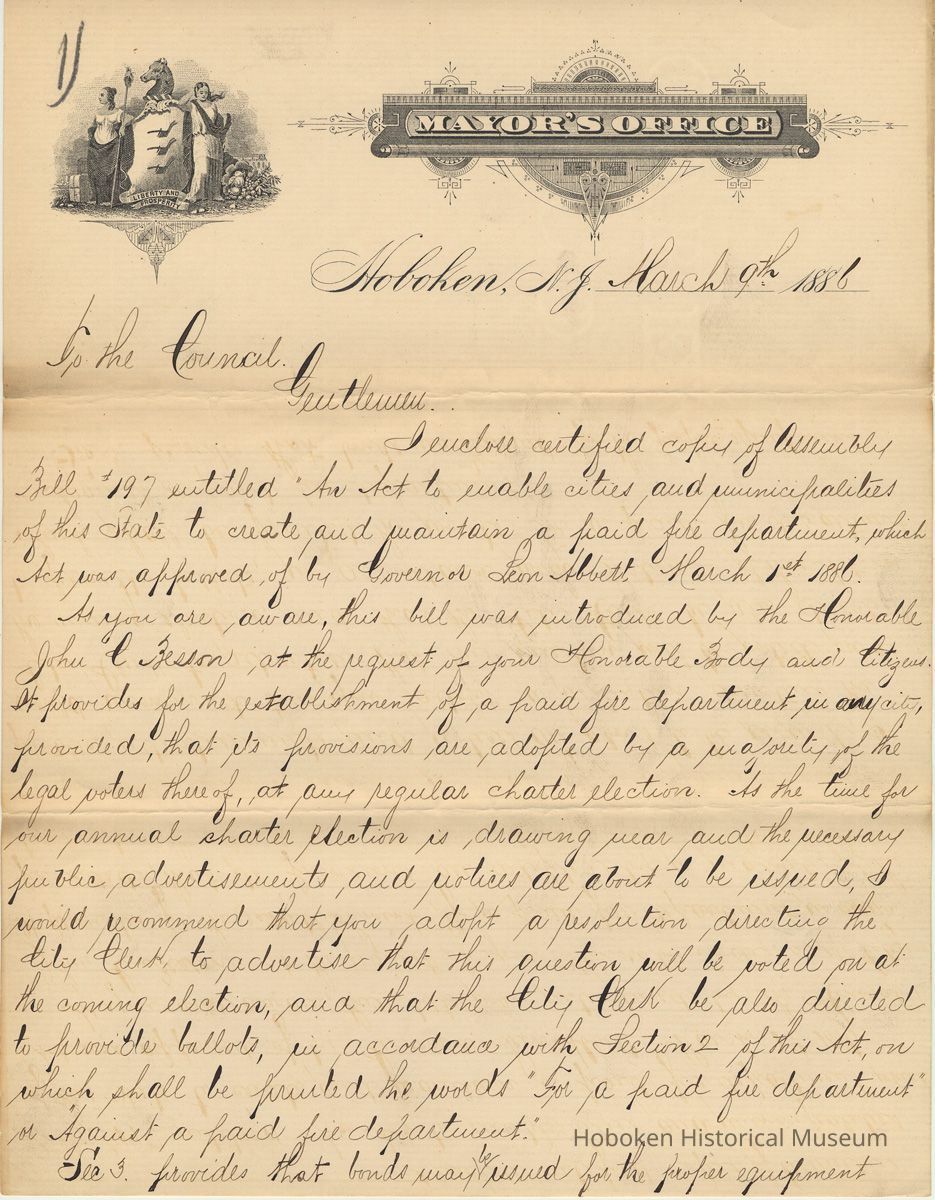 1)
LIBERTY AND
PROSPERITY
MAYOR'S OFFICE
Hoboken, N.J. March 9th 1886
To the Council.
Gentlemen.
I enclose certified copy of Assembly
Bill #197 entitled "An Act to enable cities and municipalities
of this State to create and maintain a paid fire department, which
Act was approved of by Governor Leon Abbett March 1st 1886.
As you are aware, this bill was introduced by the Honorable
John C Besson at the request of your Honorable Body and Citizens.
It provides for the establishment of a paid fire department in any city,
provided, that its provisions are adopted by a majority of the
legal voters thereof, at any regular charter election. As the time for
our annual charter election is drawing near and the necessary
public advertisements and notices are about to be issued, I
would recommend that you adopt a resolution directing the
City Clerk to advertise that this question will be voted on at
the coming election, and that the City Clerk be also directed
to provide ballots, in accordance with Section 2 of this Act, on
which shall be printed the words "For a paid fire department"
or "Against a paid fire department."
Sec 3. provides that bonds may be issued for the proper equipment
Hoboken Historical Museum